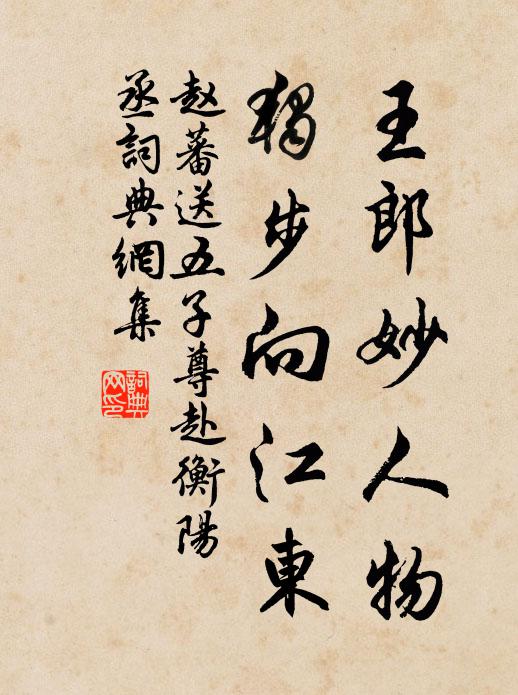 王郎妙人物
獨步向江東
赵蕃送五子尊赴衡陽
丞詞典網集
詞典
网印